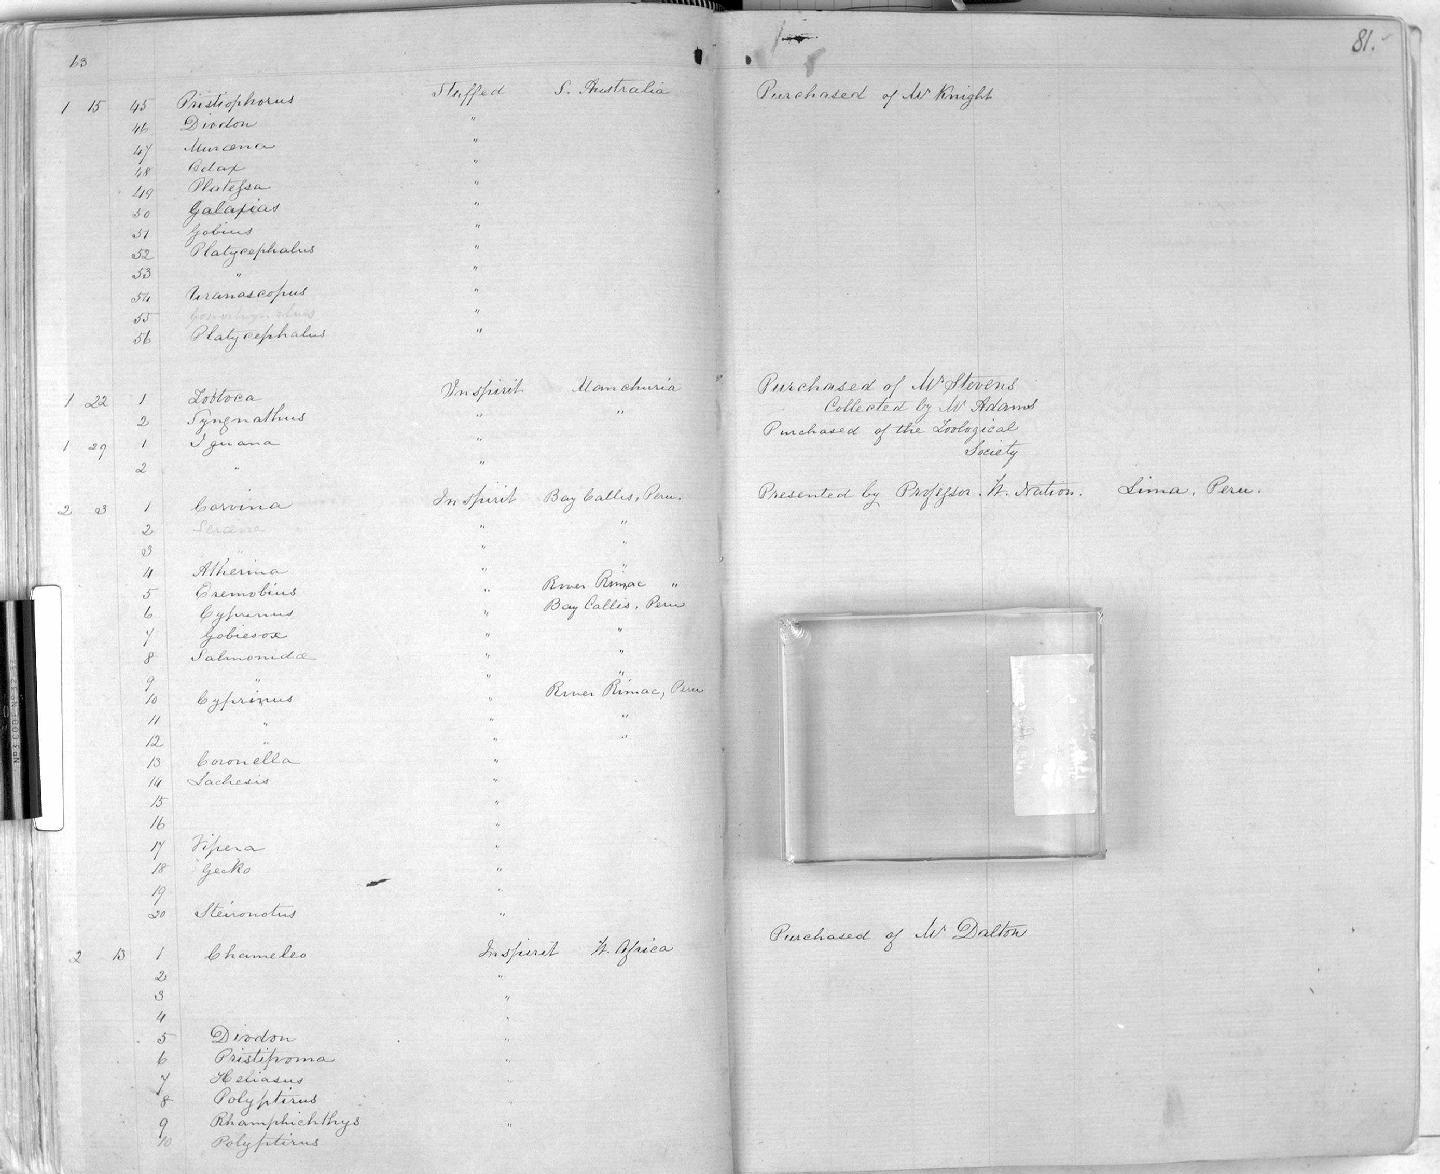 63 81.
1 15 45 Pristiophorus Stuffed S. Australia Purchased of Mr Knight
46 Diodon "
47 Muræna "
48 Odax "
49 Platessa "
50 Galaxias "
51 Gobius "
52 Platycephalus "
53 " "
54 Uranascopus "
55 "
56 Platycephalus "
1 22 1 Zootoca In spirit Manchuria Purchased of Mr Stevens
Collected by Mr Adams
2 Syngnathus " "
1 29 1 Iguana " Purchased of the Zoological
Society
2 " "
2 3 1 Corvina In spirit Bay Callis, Peru. Presented by Professor. W. Nation. Lima, Peru.
2 " "
3 " "
4 Atherina " "
5 Eremobius " River Rimac "
6 Cyprinus " Bay Callis, Peru
7 Gobiesox " "
8 Salmonidæ " "
9 " " "
10 Cyprinus " River Rimac, Peru
11 " " "
12 " " "
13 Coronella "
14 Lachesis "
15 "
16 "
17 Vipera "
18 Gecko "
19 "
20 Steironotus "
2 13 1 Chameleo In spirit W. Africa Purchased of Mr Dalton
2 "
3 "
4 "
5 Diodon "
6 Pristipoma "
7 Heliasus "
8 Polyptirus "
9 Rhamphichthys "
10 Polyptirus